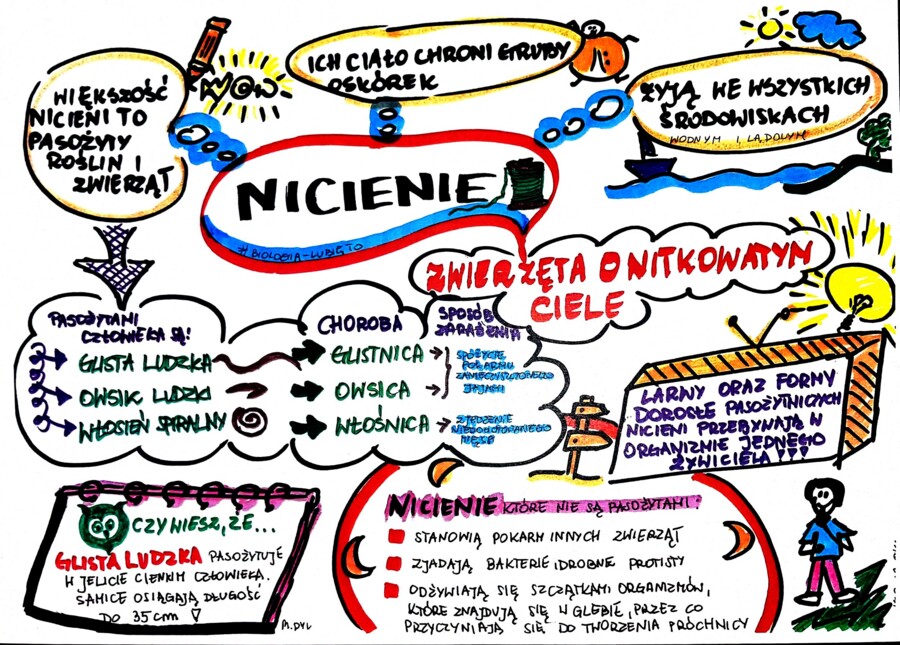 WIĘKSZOŚĆ
NICIENI TO
PASOŻYTY
ROŚLIN I
ZWIERZĄT
ICH CIAŁO CHRONI GRUBY
OSKÓREK
ŻYJĄ WE WSZYSTKICH
ŚRODOWISKACH
WODNYM I LĄDOWYM
NICIENIE
#BIOLOGIA-LUBIĘ TO
ZWIERZĘTA O NITKOWATYM
CIELE
PASOŻYTAMI
CZŁOWIEKA SĄ:
GLISTA LUDZKA
OWSIK LUDZKI
WŁOSIEŃ SPIRALNY
CHOROBA
GLISTNICA
OWSICA
WŁOŚNICA
SPOSÓB
ZARAŻENIA
SPOŻYCIE
POKARMU
ZANIECZYSZCZONEGO
JAJAMI
ZJEDZENIE
NIEDOGOTOWANEGO
MIĘSA
LARWY ORAZ FORMY
DOROSŁE PASOŻYTNICZYCH
NICIENI PRZEBYWAJĄ W
ORGANIZMIE JEDNEGO
ŻYWICIELA!!!
CZY WIESZ, ŻE...
GLISTA LUDZKA PASOŻYTUJE
W JELICIE CIENKIM CZŁOWIEKA.
SAMICE OSIĄGAJĄ DŁUGOŚĆ
DO 35 cm!
M.DYL
NICIENIE KTÓRE NIE SĄ PASOŻYTAMI:
STANOWIĄ POKARM INNYCH ZWIERZĄT
ZJADAJĄ BAKTERIE I DROBNE PROTISTY
ODŻYWIAJĄ SIĘ SZCZĄTKAMI ORGANIZMÓW,
KTÓRE ZNAJDUJĄ SIĘ W GLEBIE, PRZEZ CO
PRZYCZYNIAJĄ SIĘ DO TWORZENIA PRÓCHNICY